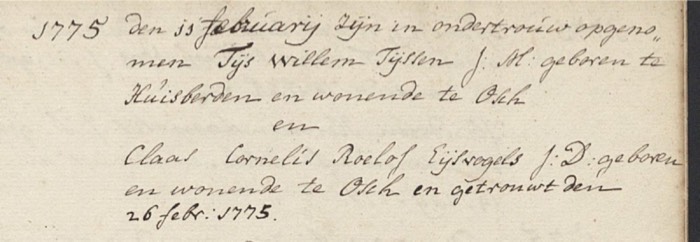 1775 den 11 februarij zijn in ondertrouw opgeno„
men Tijs Willem Tijssen J: M: geboren te
Huisberden en wonende te Osch
en
Claas Cornelis Roelof Eijsvogels J: D: geboren
en wonende te Osch en getrouwt den
26 febr: 1775.